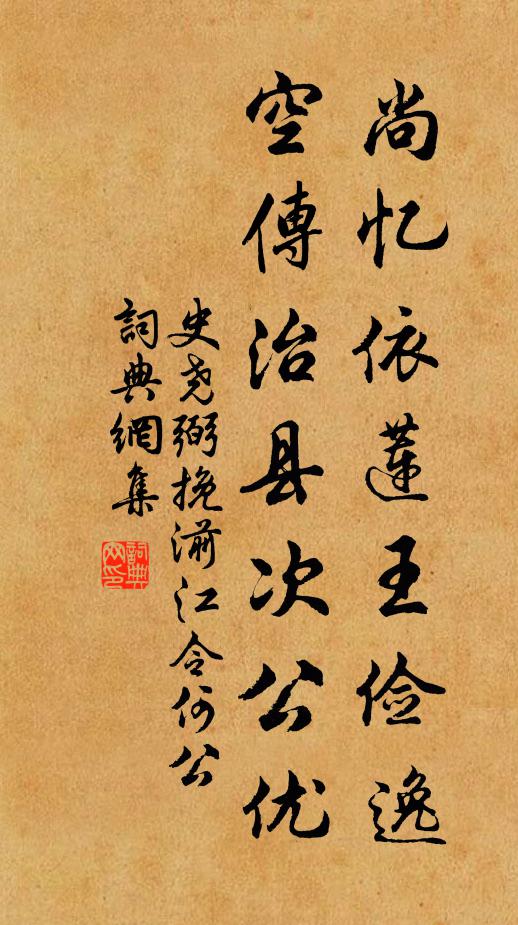 尚忆依蓮王俭逸
空傳治县次公优
史尧弼挽湔江令何公
詞典網集
詞典网印